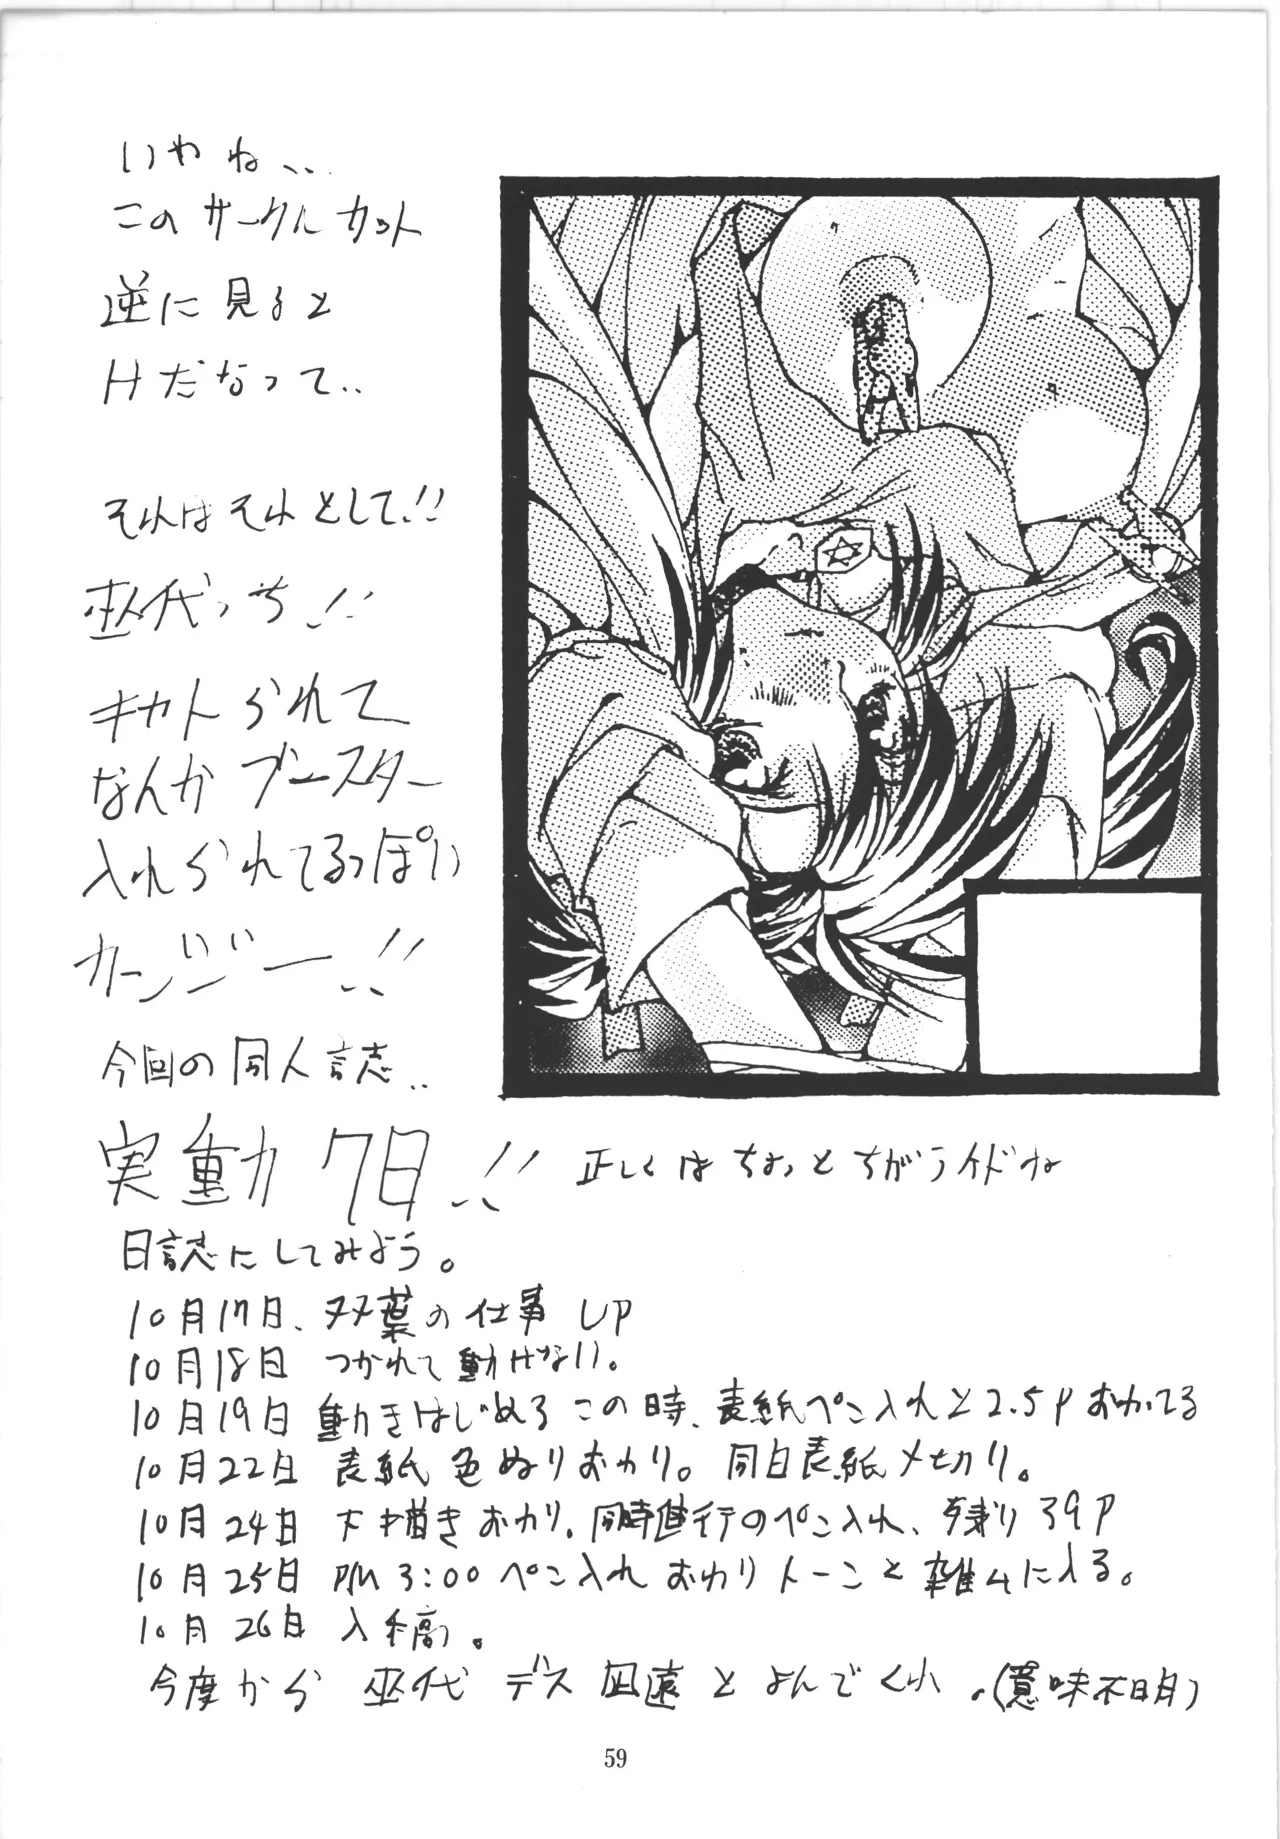 いやね、、
このサークルカット
逆に見ると
Hだなって、、
それはそれとして!!
巫代っち!!
キャトられて
なんかブースター
入れられてるっぽい
カーンジー!!
今回の同人誌、、
実動 7日!!
正しくはちょっとちがうけどね
日誌にしてみよう。
10月17日、双葉の仕事 UP
10月18日 つかれて動けない。
10月19日 動きはじめる この時、表紙ペン入れと2.5Pおわってる
10月22日 表紙色ぬりおわり。同日表紙〆切り。
10月24日 下描きおわり。同時進行のペン入れ、残り39P
10月25日 PM 3:00 ペン入れおわりトーンと雑ムに入る。
10月26日 入稿。
今度から 巫代 デス 凪遠 とよんでくれ。(意味不明)
59